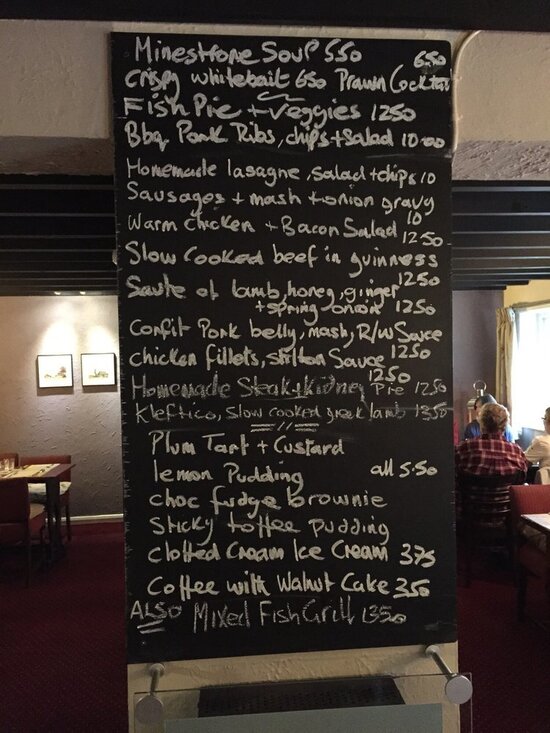 Minestrone Soup 550
650
Crispy whitebait 650 Prawn Cocktail
Fish Pie + Veggies 1250
Bbq Pork Ribs, chips + Salad 10.00
Homemade lasagne, salad + chips 10
Sausages + mash + onion gravy
10
Warm chicken + Bacon Salad 1250
Slow cooked beef in guinness
1250
Saute of lamb, honey, ginger
+ spring onion 1250
Confit Pork belly, mash, R/W Sauce
1250
Chicken fillets, stilton Sauce
1250
Homemade Steak + Kidney Pie 1250
Kleftico, Slow cooked greek lamb 1350
Plum Tart + Custard
lemon Pudding all 5.50
choc fudge brownie
Sticky toffee pudding
Clotted Cream Ice Cream 375
Coffee with Walnut Cake 350
ALSO Mixed Fish Grill 1350